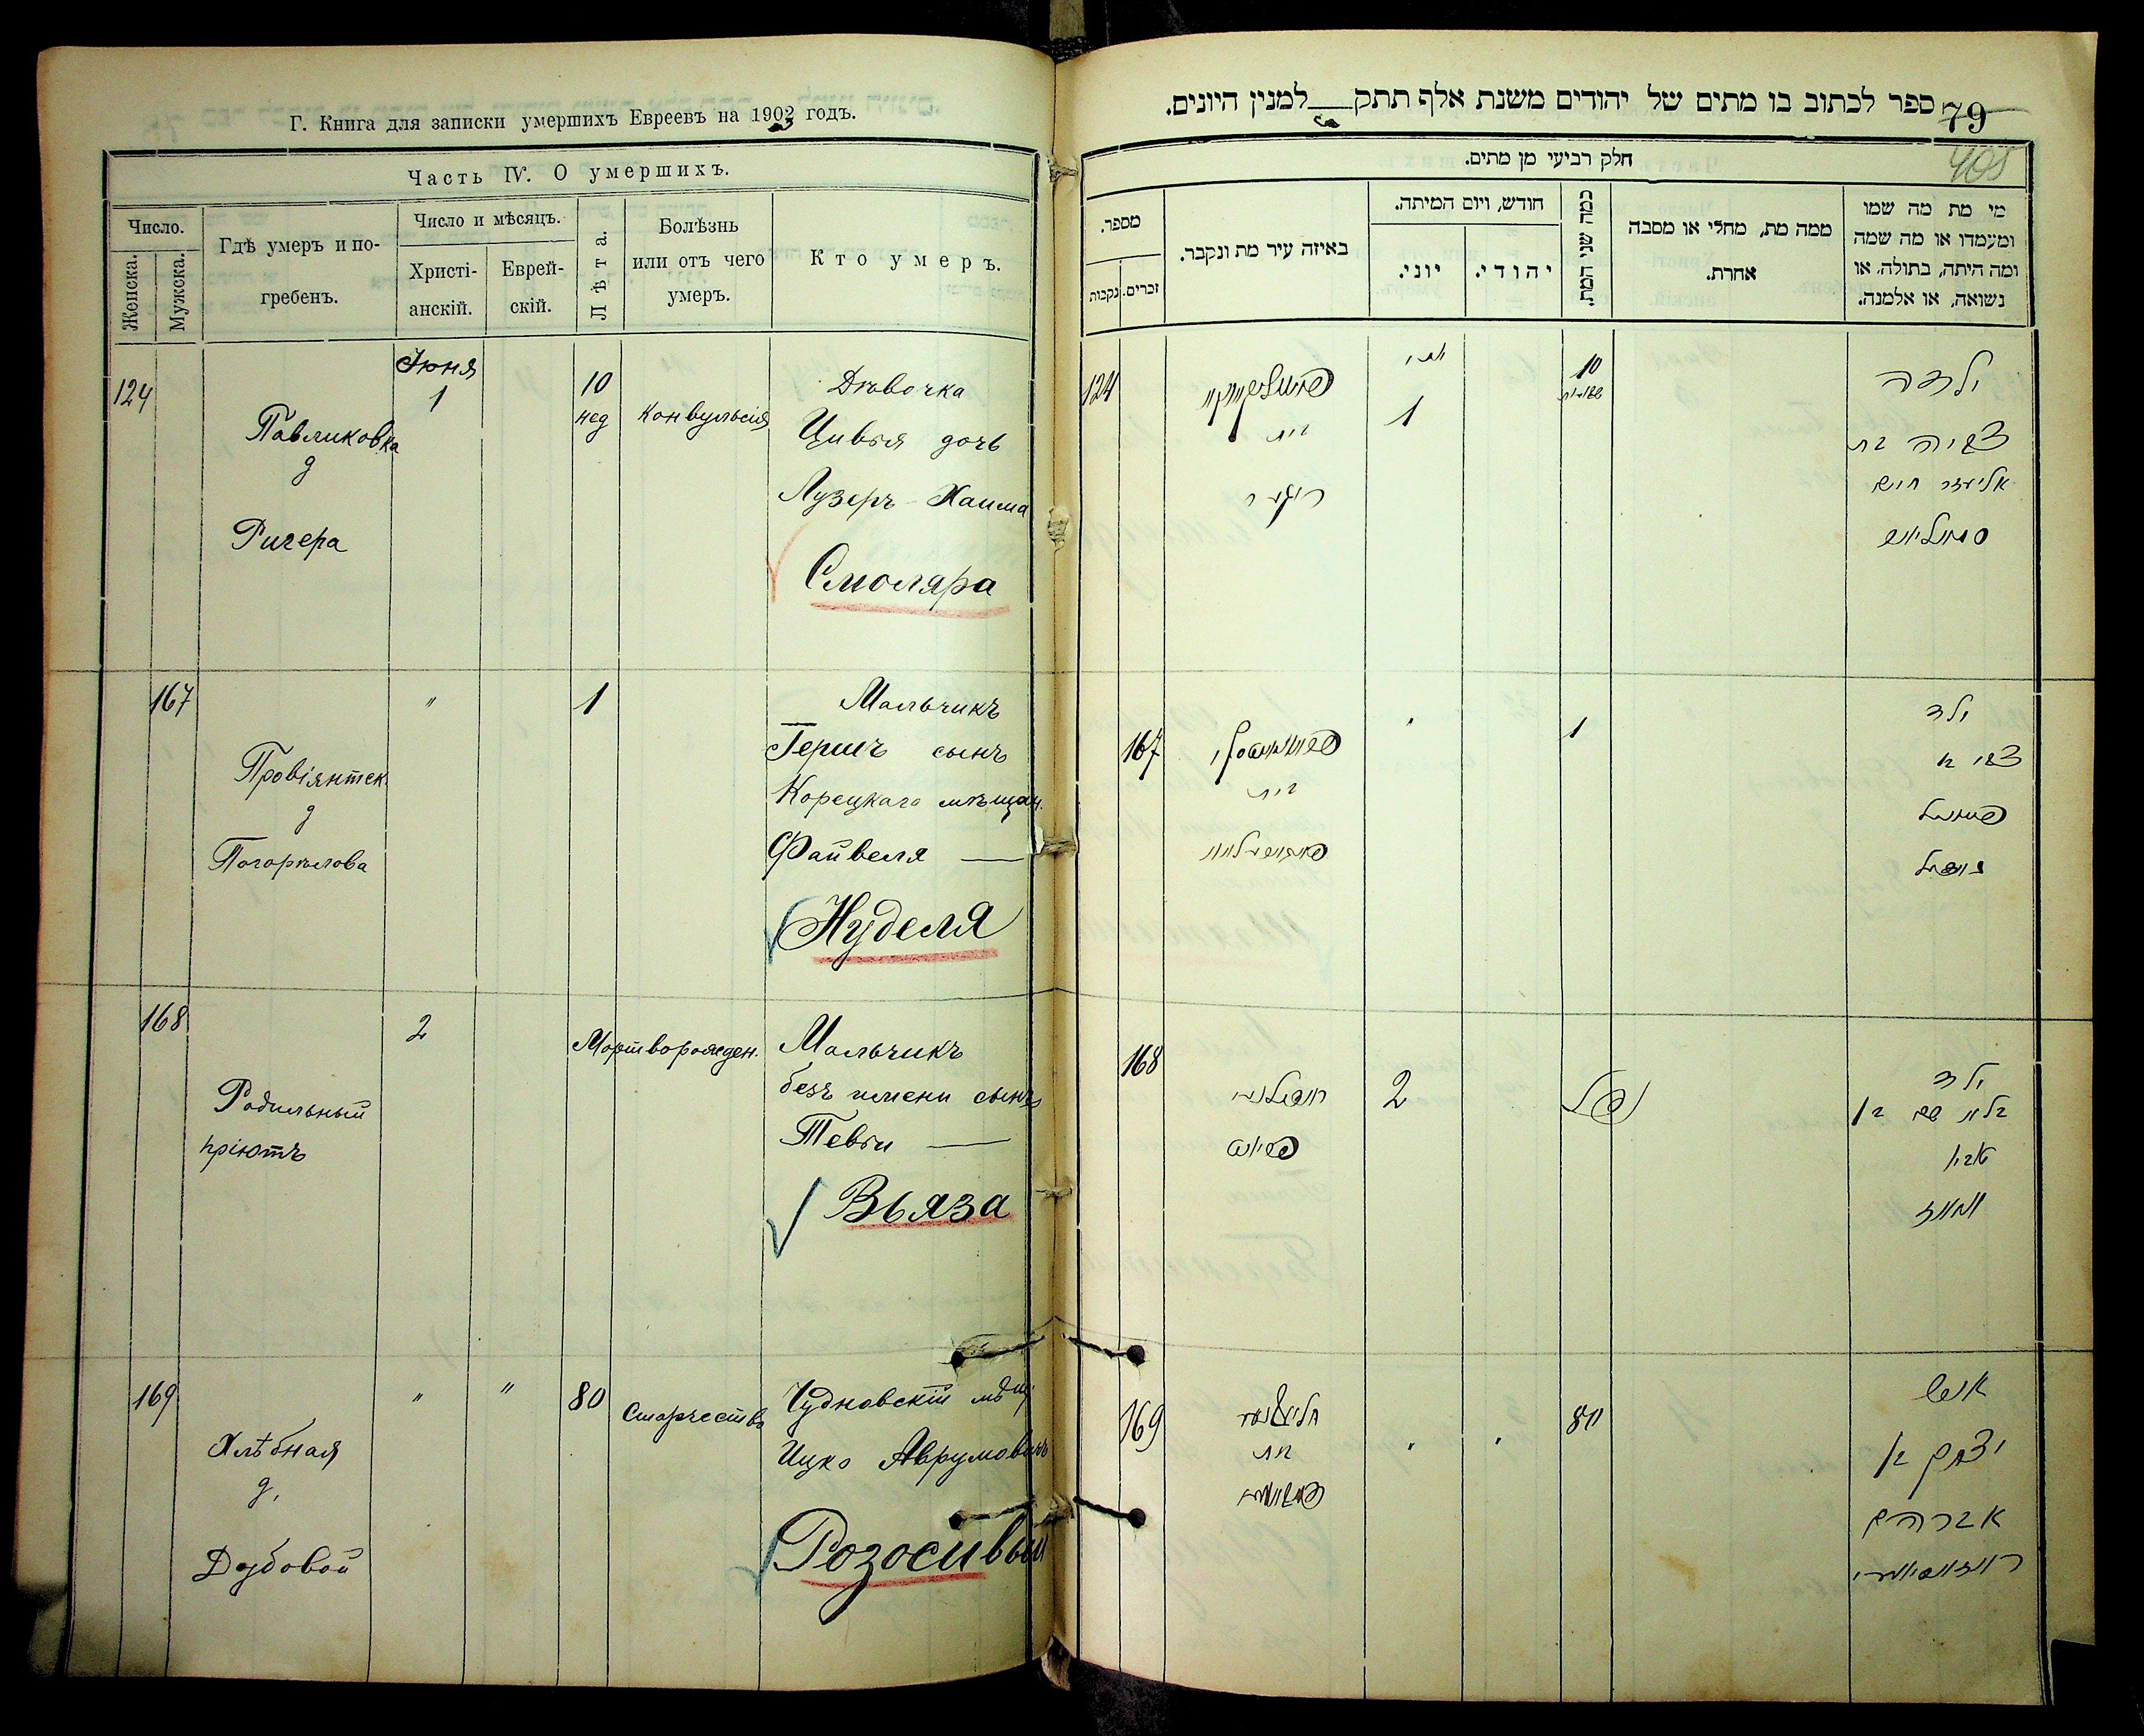 Г. Книга для записки умершихъ Евреевъ на 1903 годъ.
Часть IV. О умершихъ.
Число.
Женска.
Мужска.
Гдѣ умеръ и по-
гребенъ.
Число и мѣсяцъ.
Христі-
анскій.
Еврей-
скій.
Лѣта.
Болѣзнь
или отъ чего
умеръ.
Кто умеръ.
124
Павликовка
д
Ригера
Іюня
1
10
нед
Конвульсія
Дѣвочка
Цивья дочь
Лузеръ-Хаима
Смоляра
167
Провіянтск.
д
Погорѣлова
"
1
Мальчикъ
Гершъ сынъ
Корецкаго мѣщан.
Файвеля —
Нуделя
168
Родильный
пріютъ
2
Мертворожден.
Мальчикъ
безъ имени сынъ
Тевьи —
Вьяза
169
Хлѣбная
д.
Дубовой
"
"
80
Старчество
Чудновскій мѣщ.
Ицко Аврумовичъ
Розосивый
79
ספר לכתוב בו מתים של יהודים משנת אלף תתק למנין היונים.
405
חלק רביעי מן מתים.
מספר.
נקבות
זכרים.
באיזה עיר מת ונקבר.
חודש, ויום המיתה.
יוני.
יהודי.
כמה שני המת.
ממה מת, מחלי או מסבה
אחרת.
מי מת מה שמו
ומעמדו או מה שמה
ומה היתה, בתולה, או
נשואה, או אלמנה.
124
בית
1
10
ילדה
צביה בת
אליעזר חיים
סמוליאר
167
בית
1
ילד
צבי בן
פייוויל
נודיל
168
2
נפל
ילד
בלי שם בן
טביו
וויאז
169
בית
80
איש
יצחק בן
אברהם